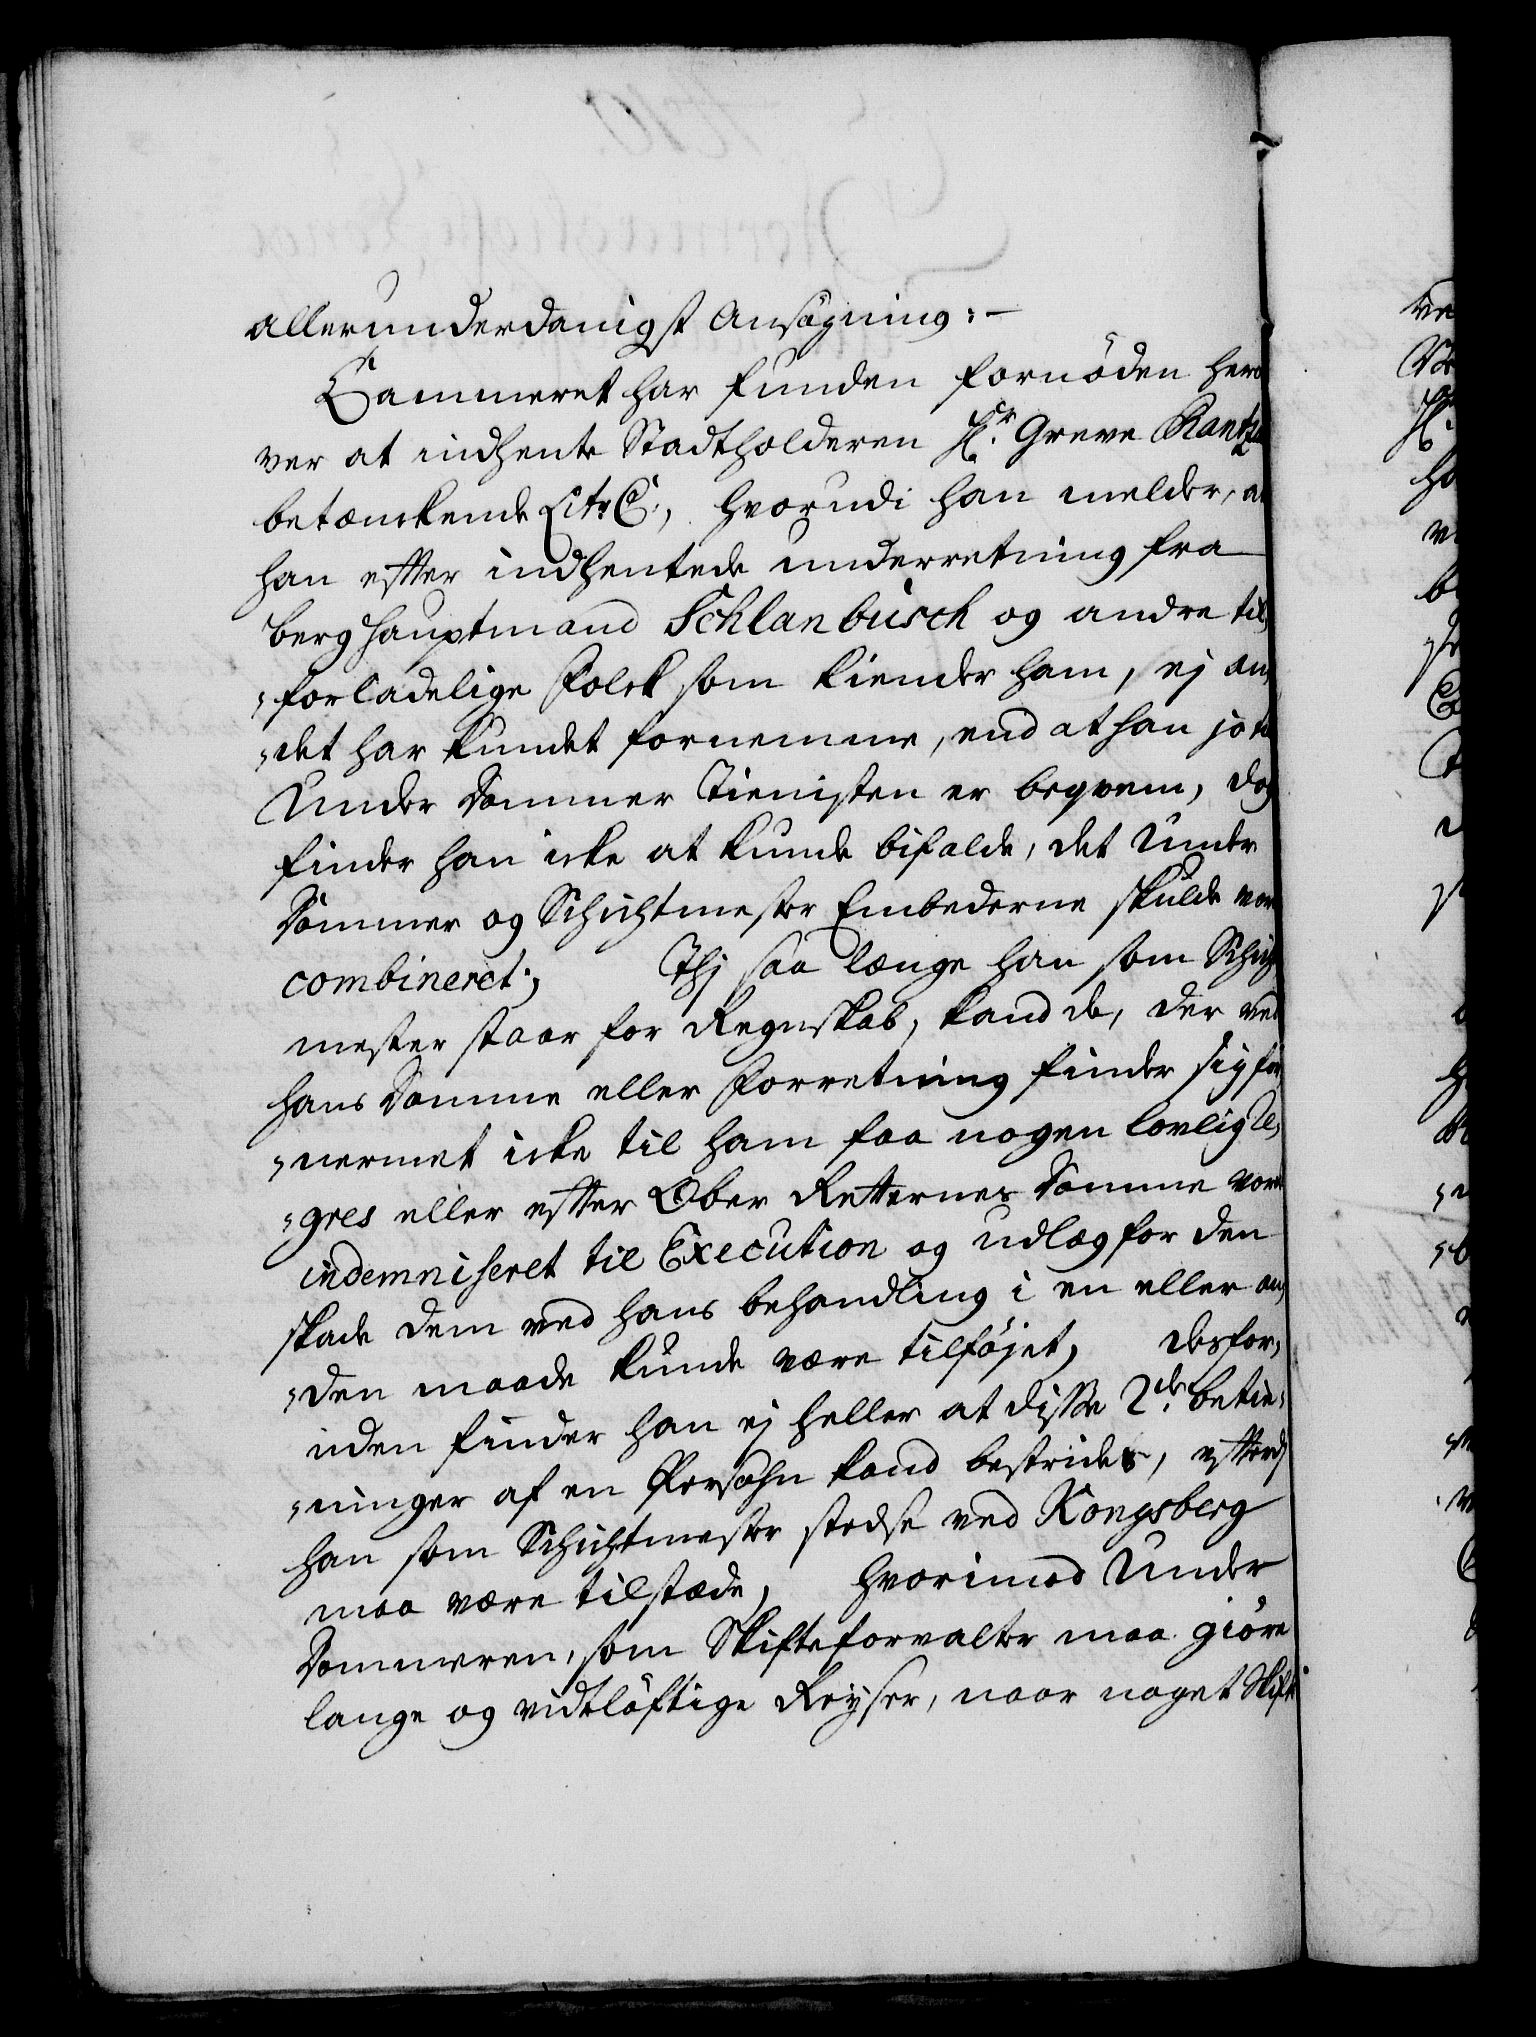 allerunderdanigst Ansøgning: —
Cammeret har funden fornøden hero
ver at indhente Stadtholderen Hr. Greve Rantzau
betænckende Litr C:, hvorudi han melder, at
han efter indhentede underretning fra
berghauptmand Schlanbusch og andre til,
„forladelige Folck som kiender ham, ej an,
„det har kundet fornemme, end at han jo til
Under Dommer Tienisten er beqvem, dog
finder han icke at kunde bifalde, det Under
Dommer og Schichtmester Embederne skulde være
combineret; Thj saa længe han som Schicht
mester staar for Regnskab, kand de, der ved
hans Domme eller Forretning finder sig for,
„nermet icke til ham faa nogen lovlig Re,
„gres eller efter Ober Retternes Domme vorde
indemniseret til Execution og udlæg for den
skade dem ved hans behandling i en eller an,
„den maade kunde være tilføjet, desfor,
uden finder han ej heller at disse 2de betie,
„ninger af en Persohn kand bestrides, efterdj
han som Schichtmester stedse ved Kongsberg
maa være tilstæde, hvorimod Under
Dommeren, som Skifteforvalter maa giøre
lange og vidtløftige Reyser, naar noget Skifte